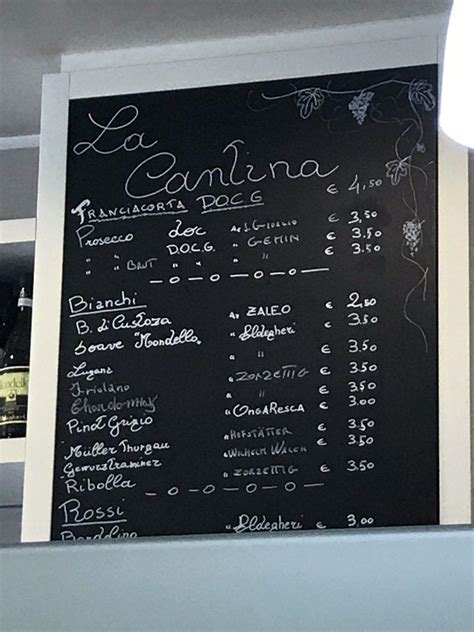 La
Cantina
FRANCIACORTA D.O.C.G € 4,50
Prosecco DOC " S. GIORGIO € 3,50
" " D.O.C.G. " GEMIN € 3.50
" " BRUT " " " € 3.50
Bianchi
B. di Custoza " ZALEO € 2,50
Soave "Mondello" " Aldegheri € 3.50
Lugana " " € 3.50
Friulano " ZORZETTIG € 3.50
Chardonnay € 3.50
Pinot Grigio " ONGARESCA € 3.00
Müller Thurgau " HOFSTÄTTER € 3.50
Gewurztraminer " WILHELM WALCH € 3.50
Ribolla " ZORZETTIG € 3.50
Rossi
Bardolino " Aldegheri € 3,00